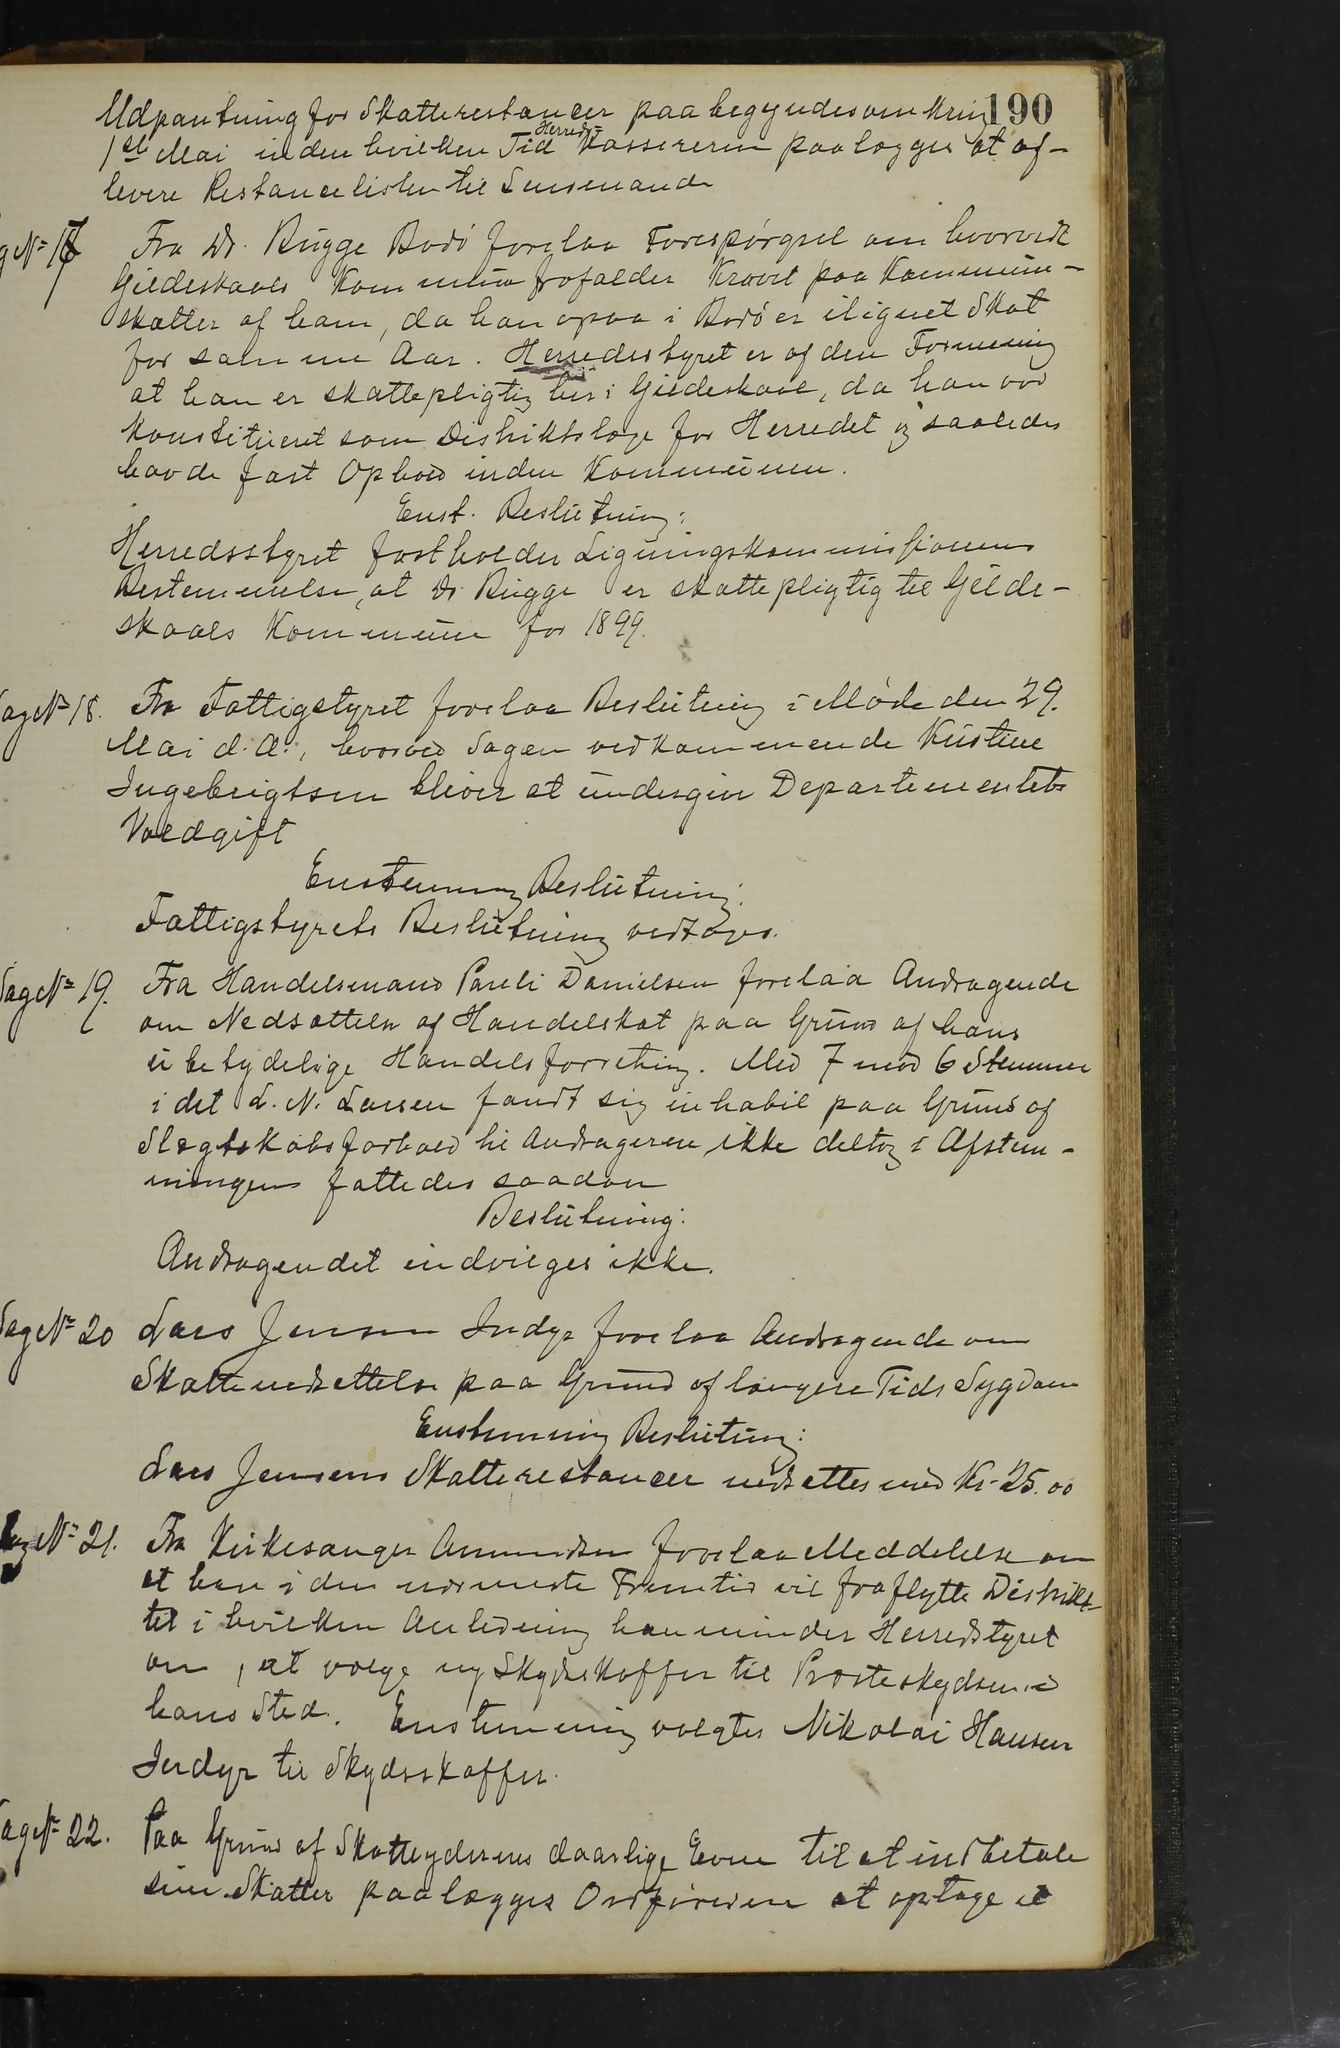 190
Udpantning for Skatterestancer paabegyndes omkring
1ste Mai inden hvilken Tid Herredskassereren paalægges at af-
levere Restancelisten til Lensmanden
Sag No 17 Fra Dr. Bugge Bodö forelaa Forespörgsel om hvorvidt
Gildeskaals Kommune frafalder Kravet paa Kommune-
skatter af ham, da han ogsaa i Bodö er ilignet Skat
for samme Aar. Herredsstyret er af den Formening
at han er skattepligtig her i Gildeskaal, da han var
Konstitueret som Distriktslæge for Herredet og saaledes
havde fast Ophold inden Kommunen.
Enst. Beslutning:
Herredsstyret fastholder Ligningskommissionens
Bestemmelse, at Dr. Bugge er skattepligtig til Gilde-
skaals Kommune for 1899.
Sag No 18. Fra Fattigstyret forelaa Beslutning i Möde den 29.
Mai d. A., hvorved Sagen vedkommende Kristine
Ingebrigtsen bliver at undergive Departementets
Voldgift
Enstemmig Beslutning:
Fattigstyrets Beslutning vedtages.
Sag No 19. Fra Handelsmand Pauli Danielsen forelaa Andragende
om Nedsættelse af Handelskat paa Grund af hans
ubetydelige Handelsforretning. Med 7 mod 6 Stemmer
i det L. N. Larsen fandt sig inhabil paa Grund af
Slægtskabsforhold til Andrageren ikke deltog i Afstem-
ningen fattedes saadan
Beslutning:
Andragendet indvilges ikke.
Sag No 20 Lars Jensen Indyr forelaa Andragende om
Skattenedsættelse paa Grund af længere Tids Sygdom
Enstemmig Beslutning:
Lars Jensens Skatterestancer nedsættes med Kr. 25.00
Sag No 21. Fra Kirkesanger Amundsen forelaa Meddelelse om
at han i den nærmeste Fremtid vil fraflytte Distrik-
tet i hvilken Anledning han minder Herredstyret
om, at vælge ny Skydsskaffer til Prsteskydsen i
hans Sted. Enstemmig valgtes Nikolai Hansen
Indyr til Skydsskaffer.
Sag No 22. Paa Grund af Skatteydernes daarlige Evne til at indbetale
sine Skatter paalægges Ordföreren at optage et